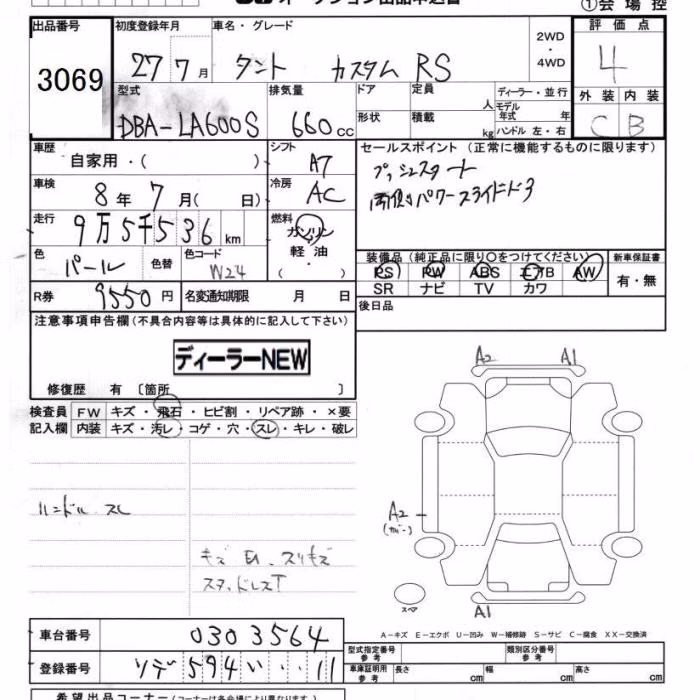 オークション出品申込書
①会場控
出品番号 初度登録年月 車名・グレード 評価点
3069 27 7月 タント カスタム RS 2WD・4WD 4
型式 排気量 ドア 定員 人 ディーラー・並行 外装 内装
形状 積載 kg モデル年式 年
ハンドル 左・右
DBA-LA600S 660cc C B
車歴 自家用・( ) シフト A7 セールスポイント(正常に機能するものに限ります)
プッシュスタート
車検 8年7月( 日) 冷房 AC 両側パワースライドドア
走行 9万5千536km 燃料 ガソリン
軽油
( ・ )
色 パール 色替 色コード W24 装備品(純正品に限り○をつけてください) 新車保証書
PS PW ABS エアB AW 有・無
SR ナビ TV カワ
R券 9550円 名変通知期限 月 日 後日品
注意事項申告欄(不具合内容等は具体的に記入して下さい)
ディーラーNEW
修復歴 有 〔箇所 〕
検査員 FW キズ・飛石・ヒビ割・リペア跡・×要
記入欄 内装 キズ・汚レ・コゲ・穴・スレ・キレ・破レ
ハンドル スレ
キズ E1、スリキズ
スタッドレスT
A2 A1
A2
(カバー)
スペア
A1
A-キズ E-エクボ U-凹み W-補修跡 S-サビ C-腐食 XX-交換済
車台番号 0303564
型式指定番号 参考 類別区分番号 参考
登録番号 594 い ・・11
車庫証明用 参考 長さ cm 幅 cm 高さ cm
希望出品コーナー(コーナーは各会場により異なります)